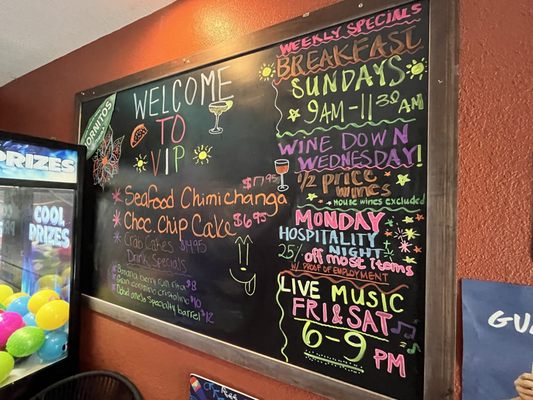 PRIZES
COOL
PRIZES
HORNITOS
WELCOME
TO
VIP
Seafood Chimichanga $17.95
Choc. Chip Cake $6.95
Crab Cakes $4.95
Drink Specials
$8
$10
specialty barrel $12
WEEKLY SPECIALS
BREAKFAST
SUNDAYS
9AM-11:30AM
WINE DOWN
WEDNESDAY!
1/2 PRICE
wines
HOUSE WINES EXCLUDED
MONDAY
HOSPITALITY NIGHT
25% off most items
W/ PROOF OF EMPLOYMENT
LIVE MUSIC
FRI & SAT
6-9
PM
GU